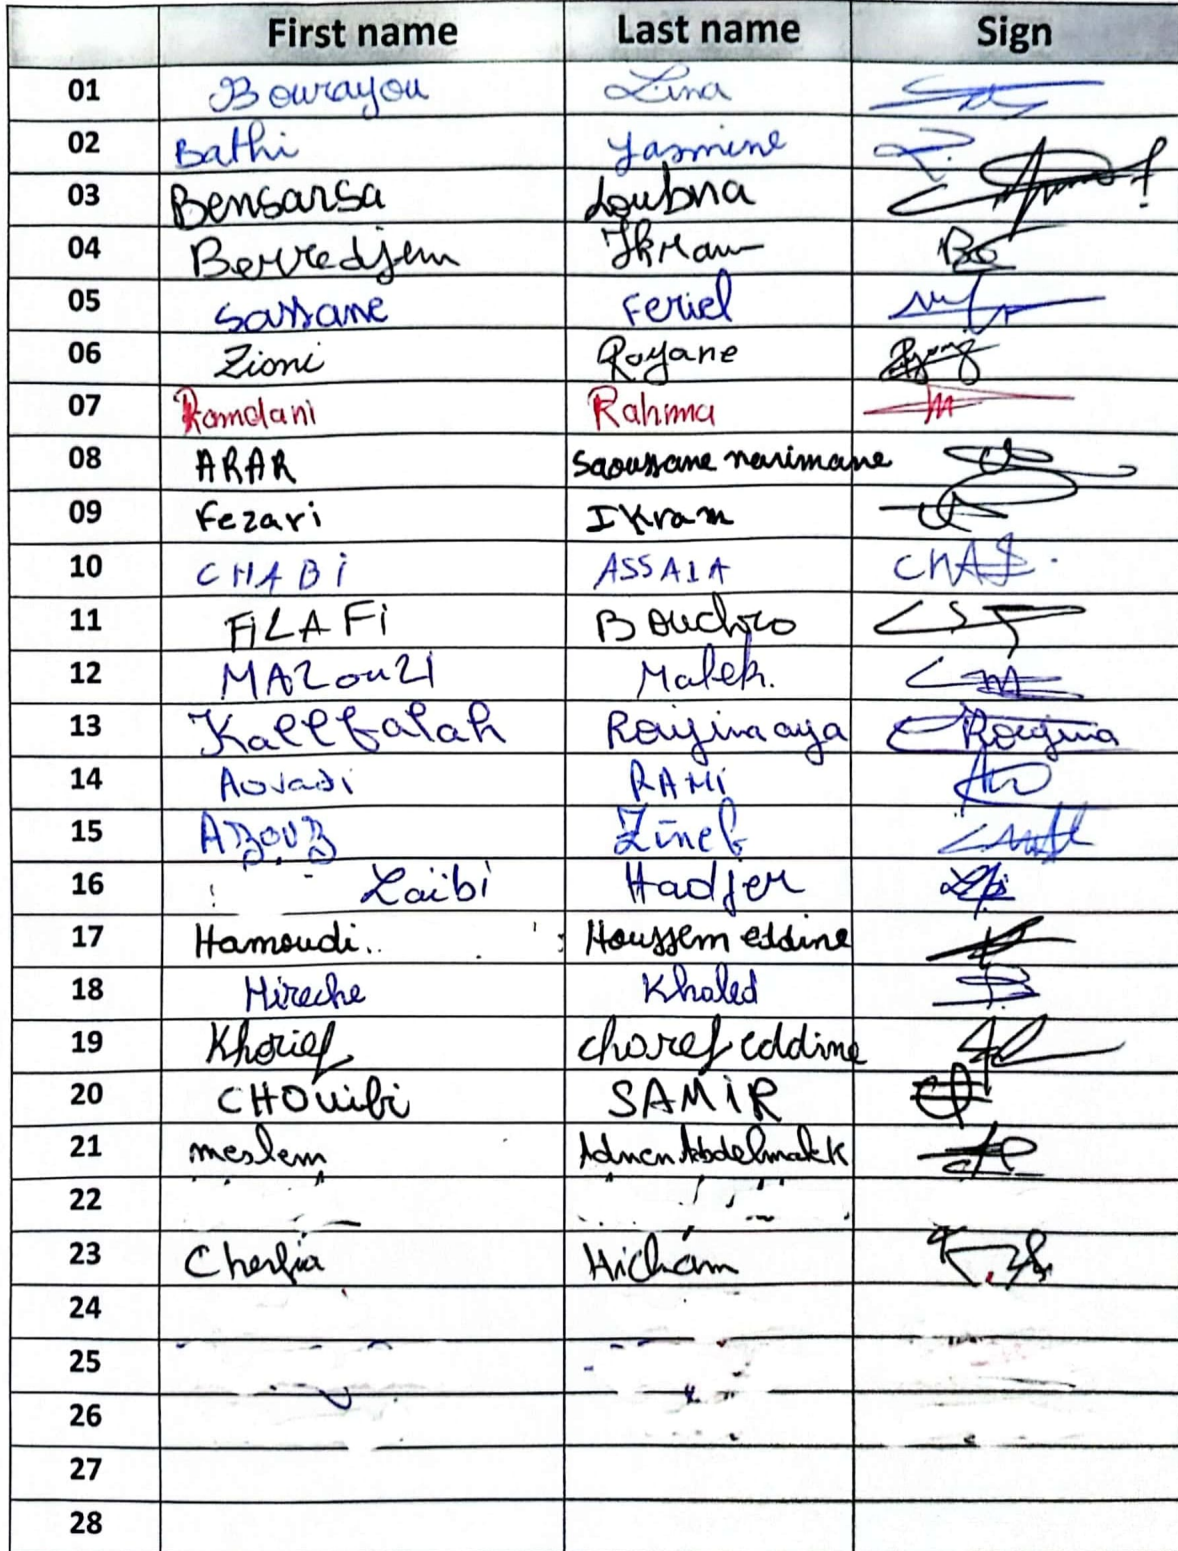 First name Last name Sign
01 Bourayou Lina
02 Bathi Yasmine
03 Bensarsa Loubna
04 Berredjem Ikram
05 Sassane Feriel
06 Zioni Rayane
07 Ramdani Rahma
08 ARAR Saoussane narimane
09 Fezari IKram
10 CHABi ASSAIA
11 FiLAFi Bouchra
12 MAZouZI Malek.
13 Kallfalah Roujina aya Roujina
14 Aouadi RAMi
15 AZOUZ Zineb
16 Laïbi Hadjer
17 Hamoudi.. Houssem eddine
18 Mireche Khaled
19 Khorief charef eddine
20 CHOuibi SAMiR
21 meslem Adnen Abdelmalek
22
23 Cherfia Hicham
24
25
26
27
28